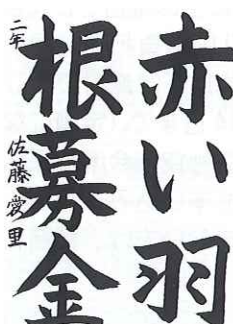 赤い羽
根募金
二年 佐藤愛里